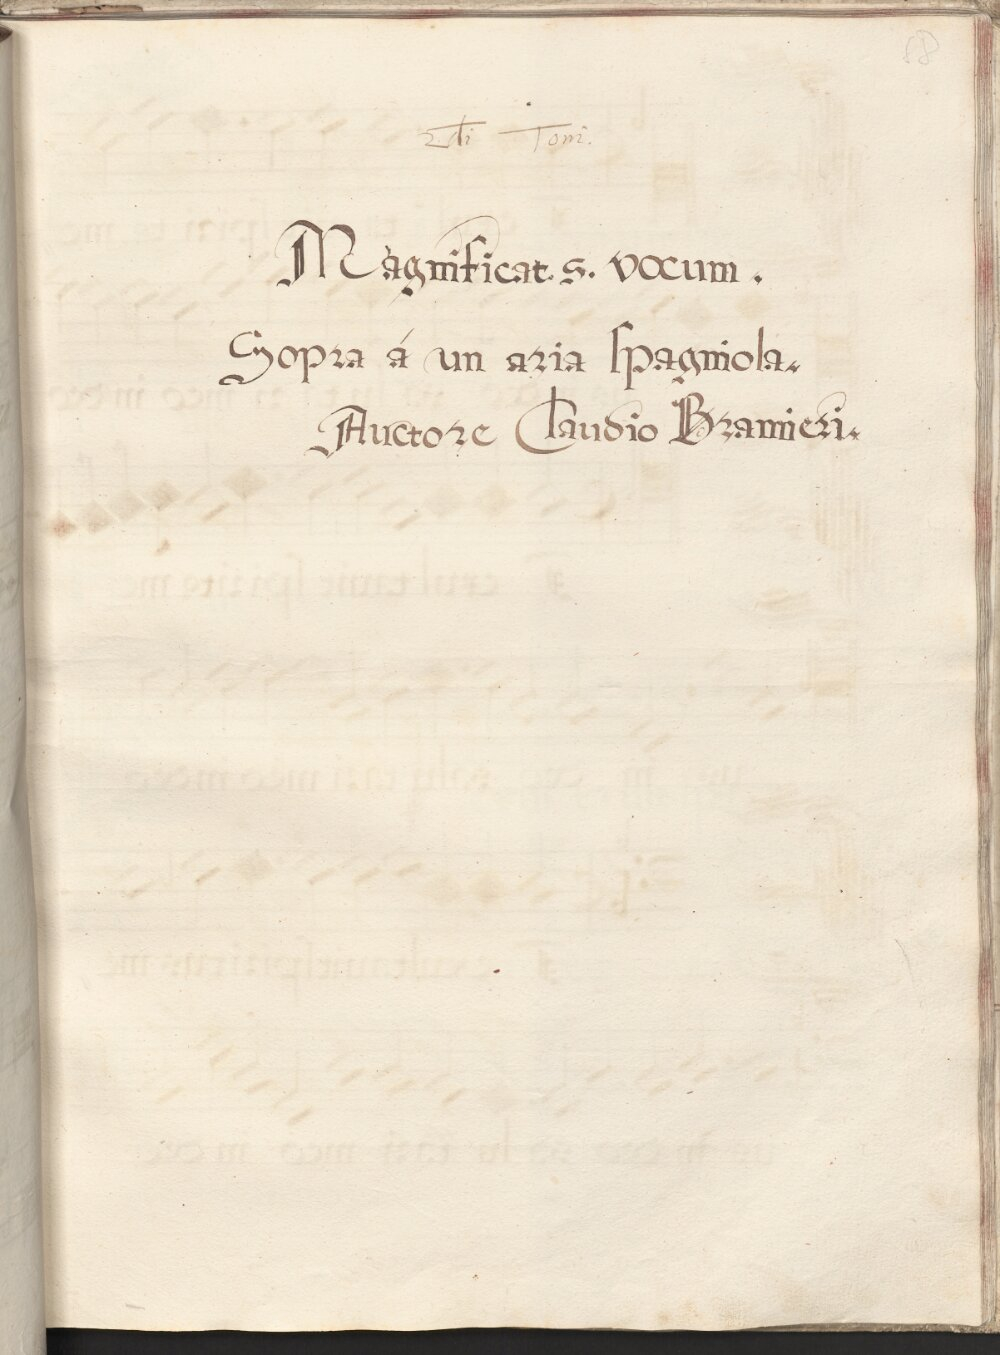 58
2di Toni.
Magnificat. 5. vocum.
Sopra á un aria spagniola.
Auctore Claudio Bramieri.